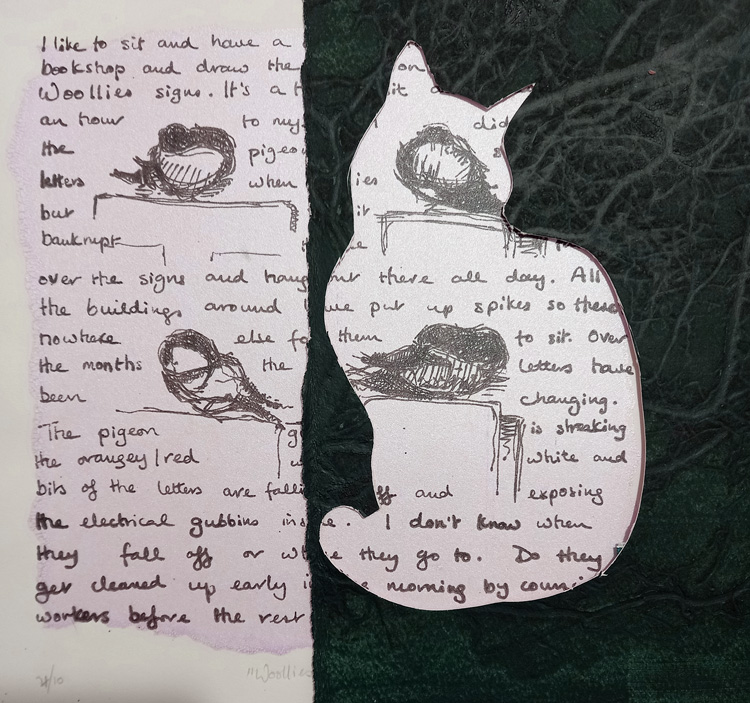 I like to sit and have a on
bookshop and draw the it a
Woollies signs. It's a
an hour to my did
the pigeon
letters when ies
but it
bankrupt
over the signs and hang out there all day. All
the buildings around have put up spikes so theres
nowhere else for them to sit. Over
the months the letters have
been changing.
The pigeon is streaking
the orangey/red white and
bits of the letters are falling off and exposing
the electrical gubbins inside. I don't know when
they fall off or where they go to. Do they
get cleaned up early in the morning by council
workers before the rest
"Woollies